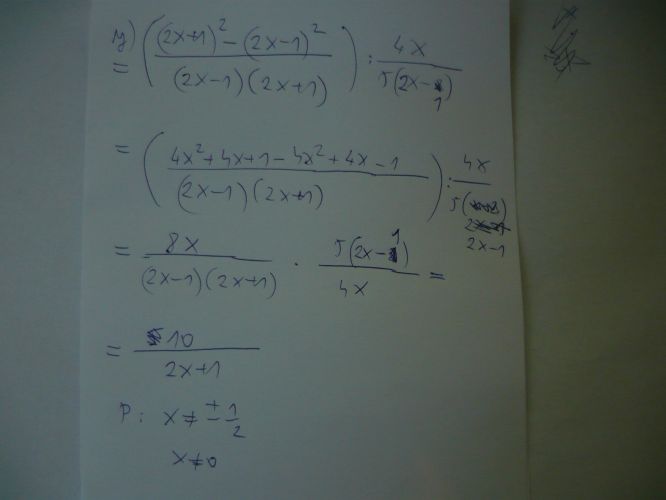 y) = ( ((2x+1)² - (2x-1)²) / ((2x-1)(2x+1)) ) : 4x / 5(2x-1)
= ( (4x² + 4x + 1 - 4x² + 4x - 1) / ((2x-1)(2x+1)) ) : 4x / 5(2x-1)
= 8x / ((2x-1)(2x+1)) · 5(2x-1) / 4x =
= 10 / (2x+1)
P: x ≠ ± 1/2
x ≠ 0